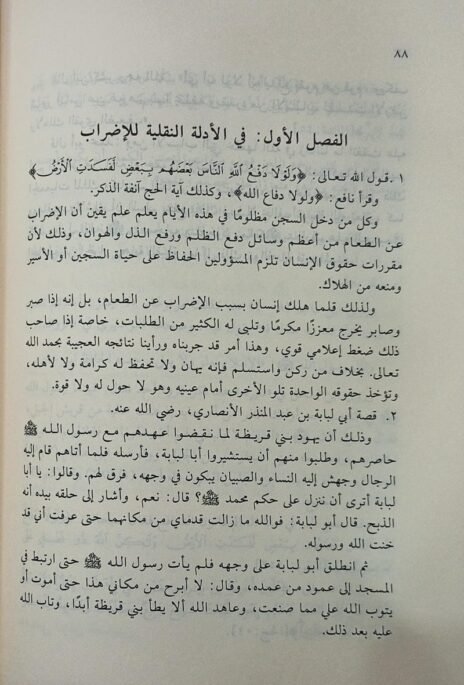 ٨٨
الفصل الأول: في الأدلة النقلية للإضراب
١ ـ قول الله تعالى: ﴿وَلَوْلَا دَفْعُ اللَّهِ النَّاسَ بَعْضَهُم بِبَعْضٍ لَّفَسَدَتِ الْأَرْضُ﴾
وقرأ نافع: ﴿ولولا دفاع الله﴾، وكذلك آية الحج آنفة الذكر.
وكل من دخل السجن مظلومًا في هذه الأيام يعلم علم يقين أن الإضراب
عن الطعام من أعظم وسائل دفع الظلم ورفع الذل والهوان، وذلك لأن
مقررات حقوق الإنسان تلزم المسؤولين الحفاظ على حياة السجين أو الأسير
ومنعه من الهلاك.
ولذلك قلما هلك إنسان بسبب الإضراب عن الطعام، بل إنه إذا صبر
وصابر يخرج معززًا مكرمًا وتلبى له الكثير من الطلبات، خاصة إذا صاحب
ذلك ضغط إعلامي قوي، وهذا أمر قد جربناه ورأينا نتائجه العجيبة بحمد الله
تعالى. بخلاف من ركن واستسلم فإنه يهان ولا تحفظ له كرامة ولا لأهله،
وتؤخذ حقوقه الواحدة تلو الأخرى أمام عينيه وهو لا حول له ولا قوة.
٢. قصة أبي لبابة بن عبد المنذر الأنصاري، رضي الله عنه.
وذلك أن يهود بني قريظة لما نقضوا عهدهم مع رسول الله ﷺ
حاصرهم، وطلبوا منهم أن يستشيروا أبا لبابة، فأرسله فلما أتاهم قام إليه
الرجال وجهش إليه النساء والصبيان يبكون في وجهه، فرق لهم. وقالوا: يا أبا
لبابة أترى أن ننزل على حكم محمد ﷺ؟ قال: نعم، وأشار إلى حلقه بيده أنه
الذبح. قال أبو لبابة: فوالله ما زالت قدماي من مكانهما حتى عرفت أني قد
خنت الله ورسوله.
ثم انطلق أبو لبابة على وجهه فلم يأت رسول الله ﷺ حتى ارتبط في
المسجد إلى عمود من عمده، وقال: لا أبرح من مكاني هذا حتى أموت أو
يتوب الله علي مما صنعت، وعاهد الله ألا يطأ بني قريظة أبدًا، وتاب الله
عليه بعد ذلك.